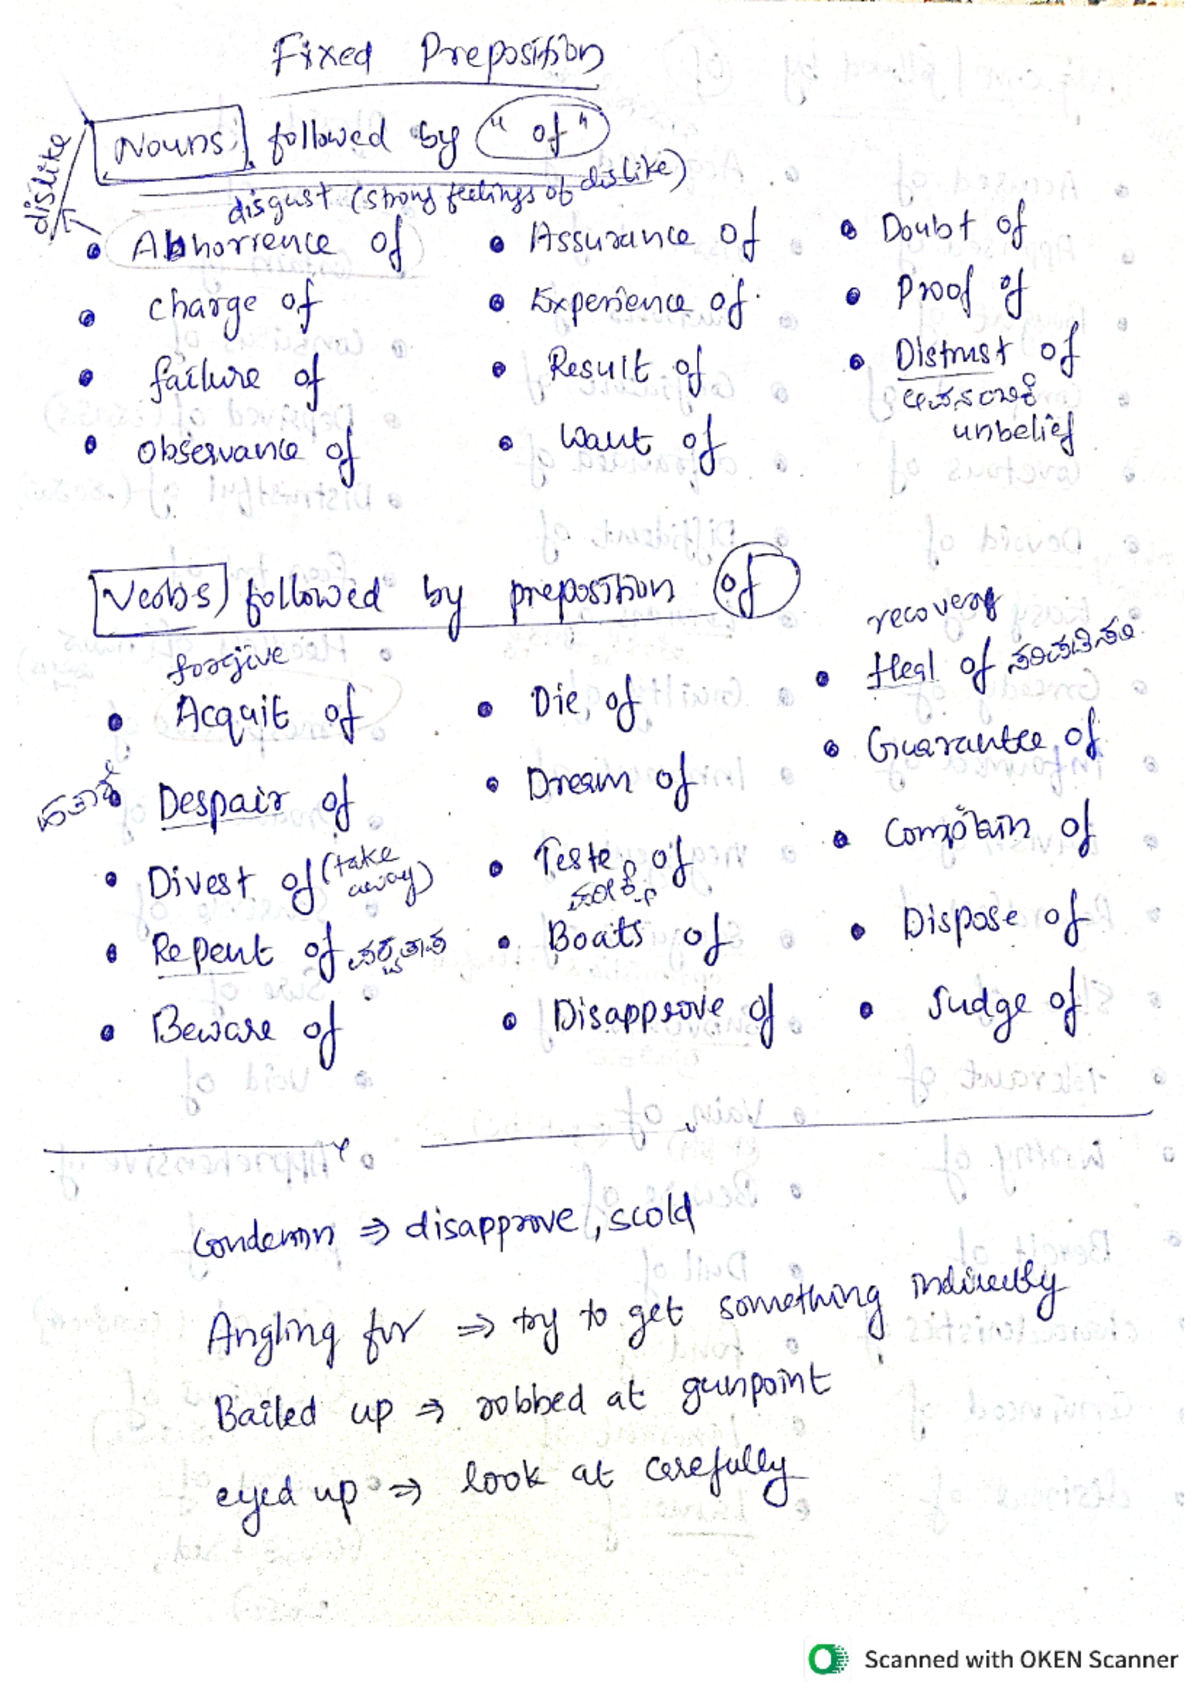 Fixed Preposition
Nouns followed by "of"
dislike
disgust (strong feelings of dislike)
• Abhorrence of • Assurance of • Doubt of
• charge of • Experience of • Proof of
• failure of • Result of • Distrust of
ಅಪನಂಬಿಕೆ
unbelief
• observance of • want of
Verbs followed by preposition of
forgive
recovery
• Acquit of • Die of • Heal of
• Despair of • Dream of • Guarantee of
• Divest of (take away) • Teste of • Complain of
• Repent of • Boats of • Dispose of
• Beware of • Disapprove of • Judge of
Condemn ⇒ disapprove, scold
Angling for ⇒ try to get something indirectly
Bailed up ⇒ robbed at gunpoint
eyed up ⇒ look at carefully
Scanned with OKEN Scanner